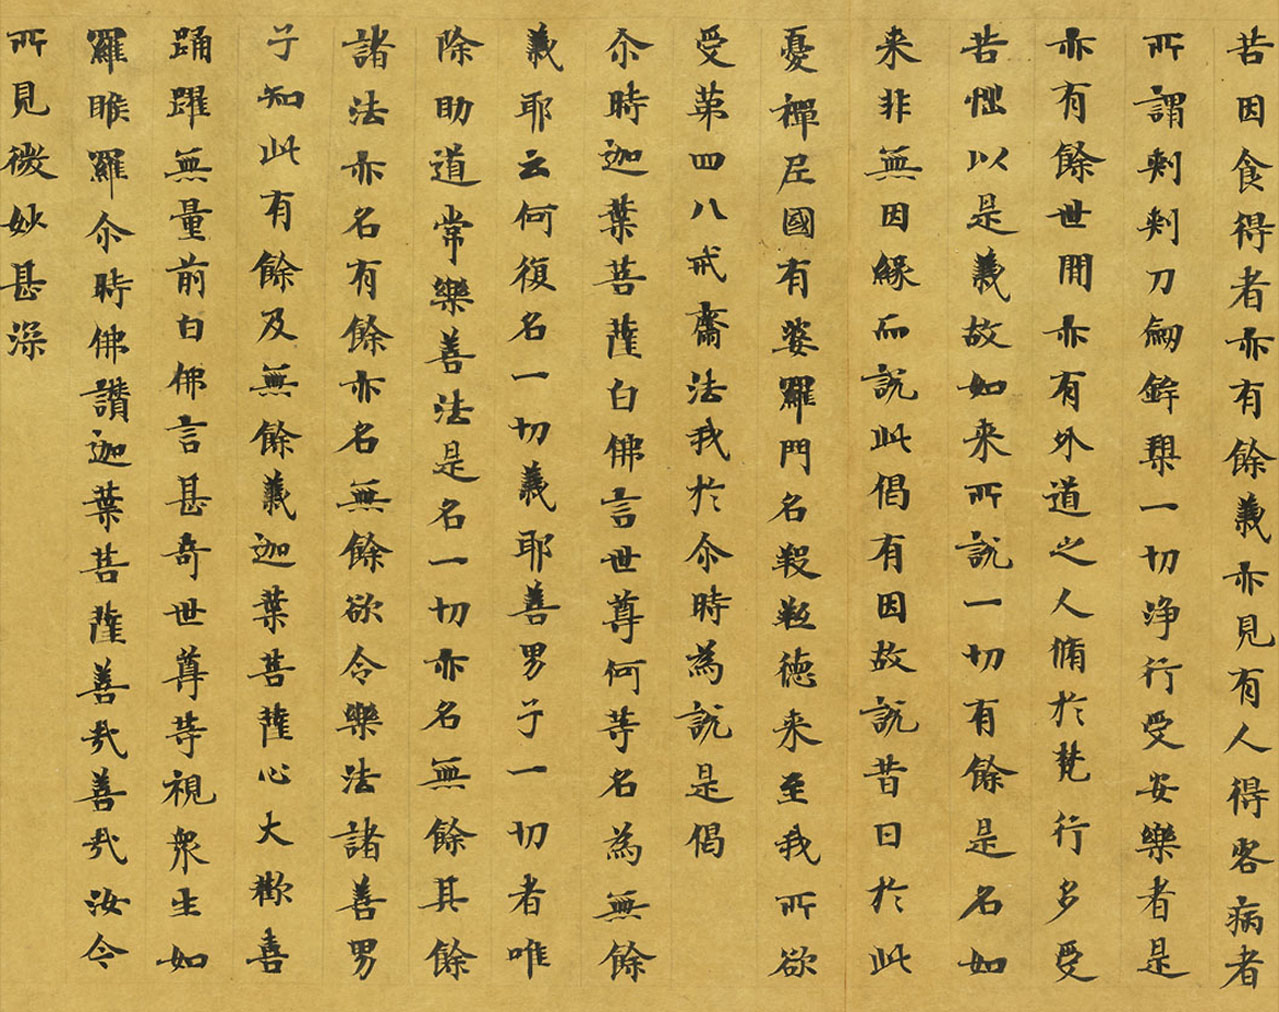 苦因食得者亦有餘義亦見有人得客病者
所謂刺刺刀劒鉾槊一切浄行受安樂者是
亦有餘世間亦有外道之人脩於梵行多受
苦惱以是義故如来所說一切有餘是名如
来非無因緣而說此偈有因故説昔日於此
憂禪尼國有婆羅門名羖羝德来至我所欲
受第四八戒齋法我於尒時為説是偈
尒時迦葉菩薩白佛言世尊何等名為無餘
義耶云何復名一切義耶善男子一切者唯
除助道常樂善法是名一切亦名無餘其餘
諸法亦名有餘亦名無餘欲令樂法諸善男
子知此有餘及無餘義迦葉菩薩心大歡喜
踊躍無量前白佛言甚奇世尊等視衆生如
羅睺羅尒時佛讃迦葉菩薩善哉善哉汝今
所見微妙甚深